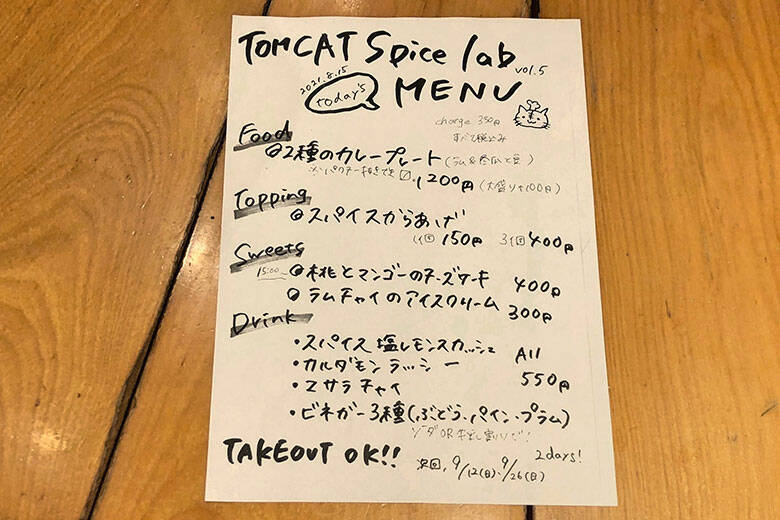 TOMCAT Spice lab vol.5
2021.8.15 today's MENU
charge 350円
すべて税込み
Food
◎2種のカレープレート(ラム&冬瓜と豆)
※パクチー抜きでき 1200円(大盛り+100円)
Topping
◎スパイスからあげ
1個 150円 3個 400円
Sweets
15:00~ ◎桃とマンゴーのチーズケーキ 400円
◎ラムチャイのアイスクリーム 300円
Drink
・スパイス塩レモンスカッシュ All
・カルダモンラッシー 550円
・マサラチャイ
・ビネガー3種(ぶどう、パイン、プラム)
ソーダOR牛乳割りで!
TAKEOUT OK!! 次回、9/12(日)、9/26(日) 2days!